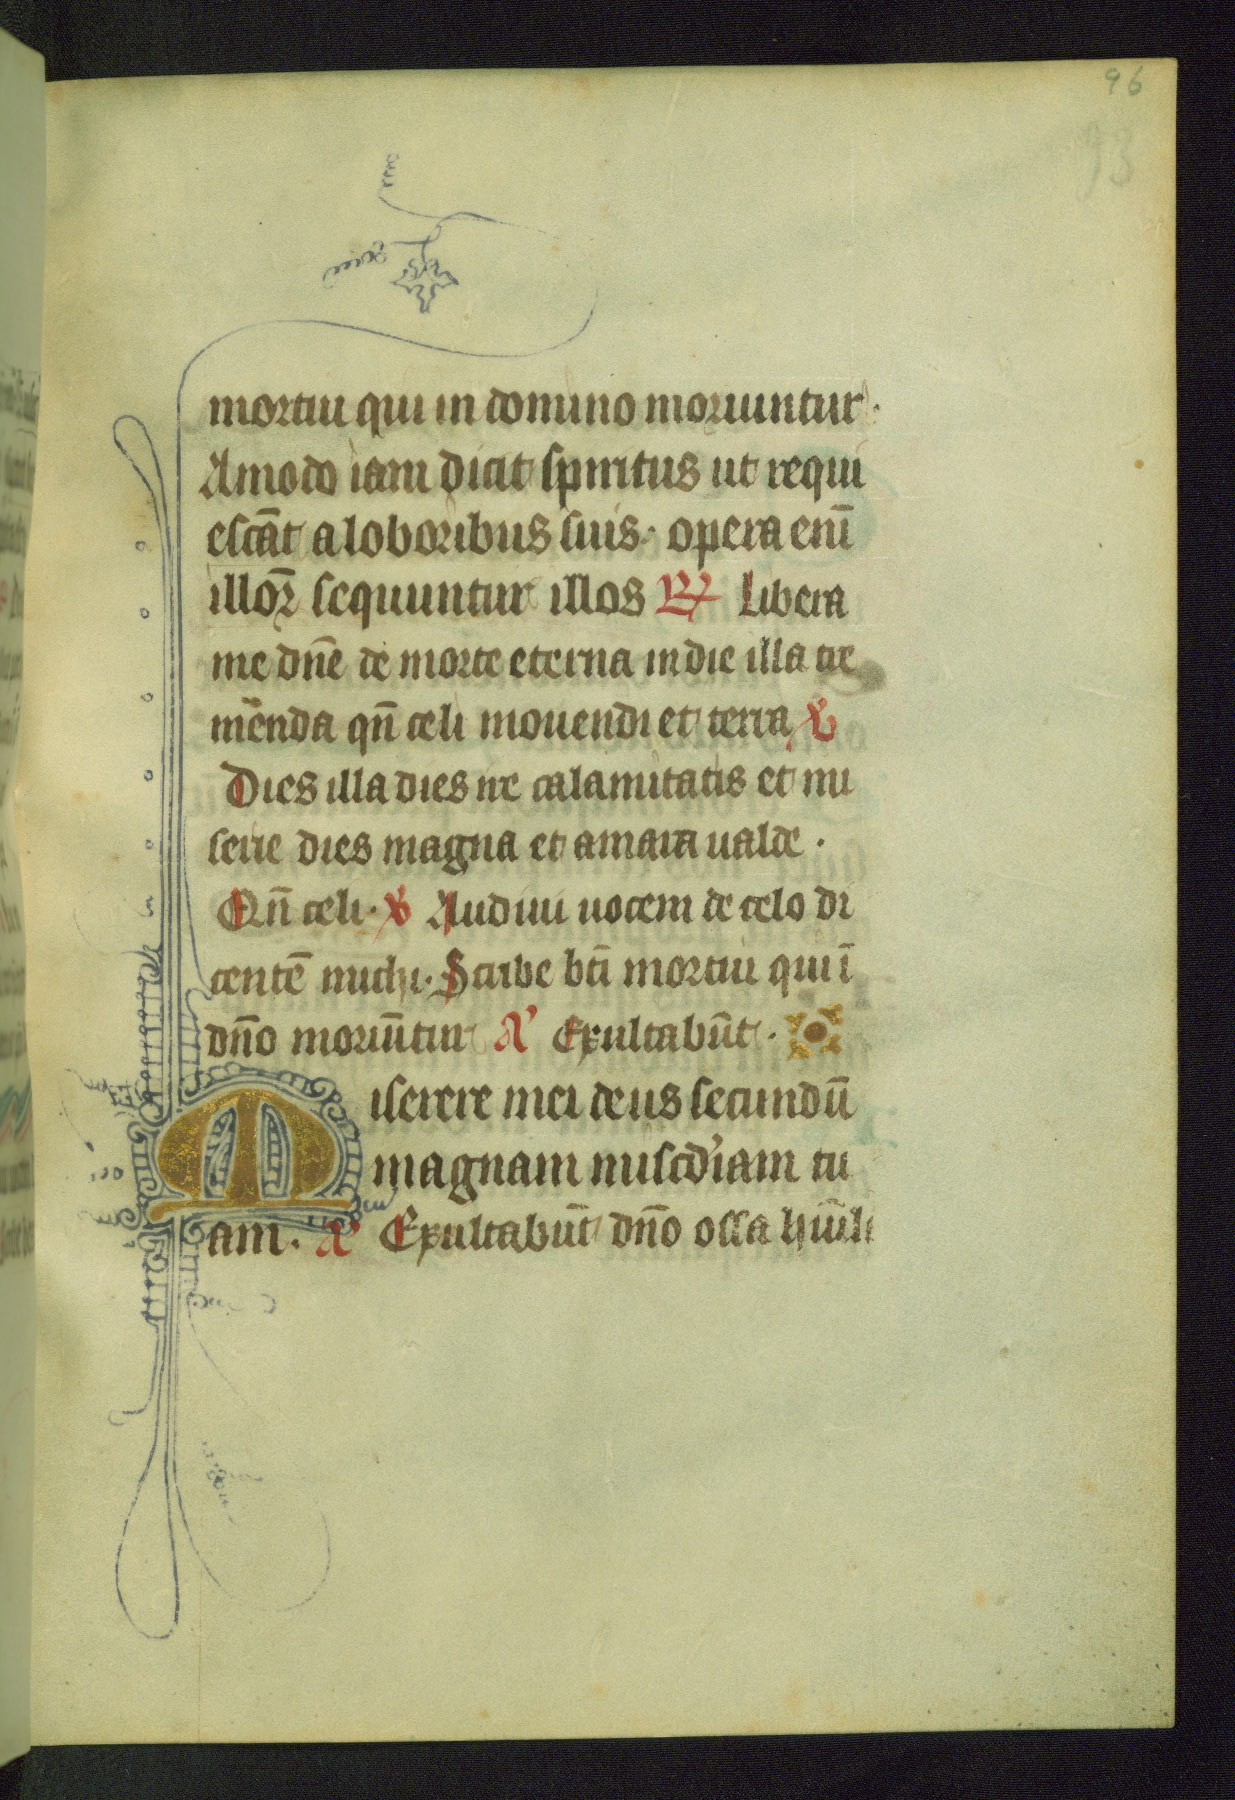 96
93
mortui qui in domino moriuntur·
Amodo iam dicit spiritus ut requi
escāt a loboribus suis· opera enī
illoꝝ sequuntur illos ℟ Libera
me dn̄e de morte eterna in die illa tre
mēnda qn̄ celi mouendi et terra ℣
Dies illa dies ire calamitatis et mi
serie dies magna et amara ualde ·
Qn̄ celi · ℣ Audiui uocem de celo di
centē michi· Scribe bt̄i mortui qui ī
dn̄o moriūtur A' Exultabūt ·
Miserere mei deus secundū
magnam misc̄diam tu
am · A' Exultabūt dn̄o ossa hūili